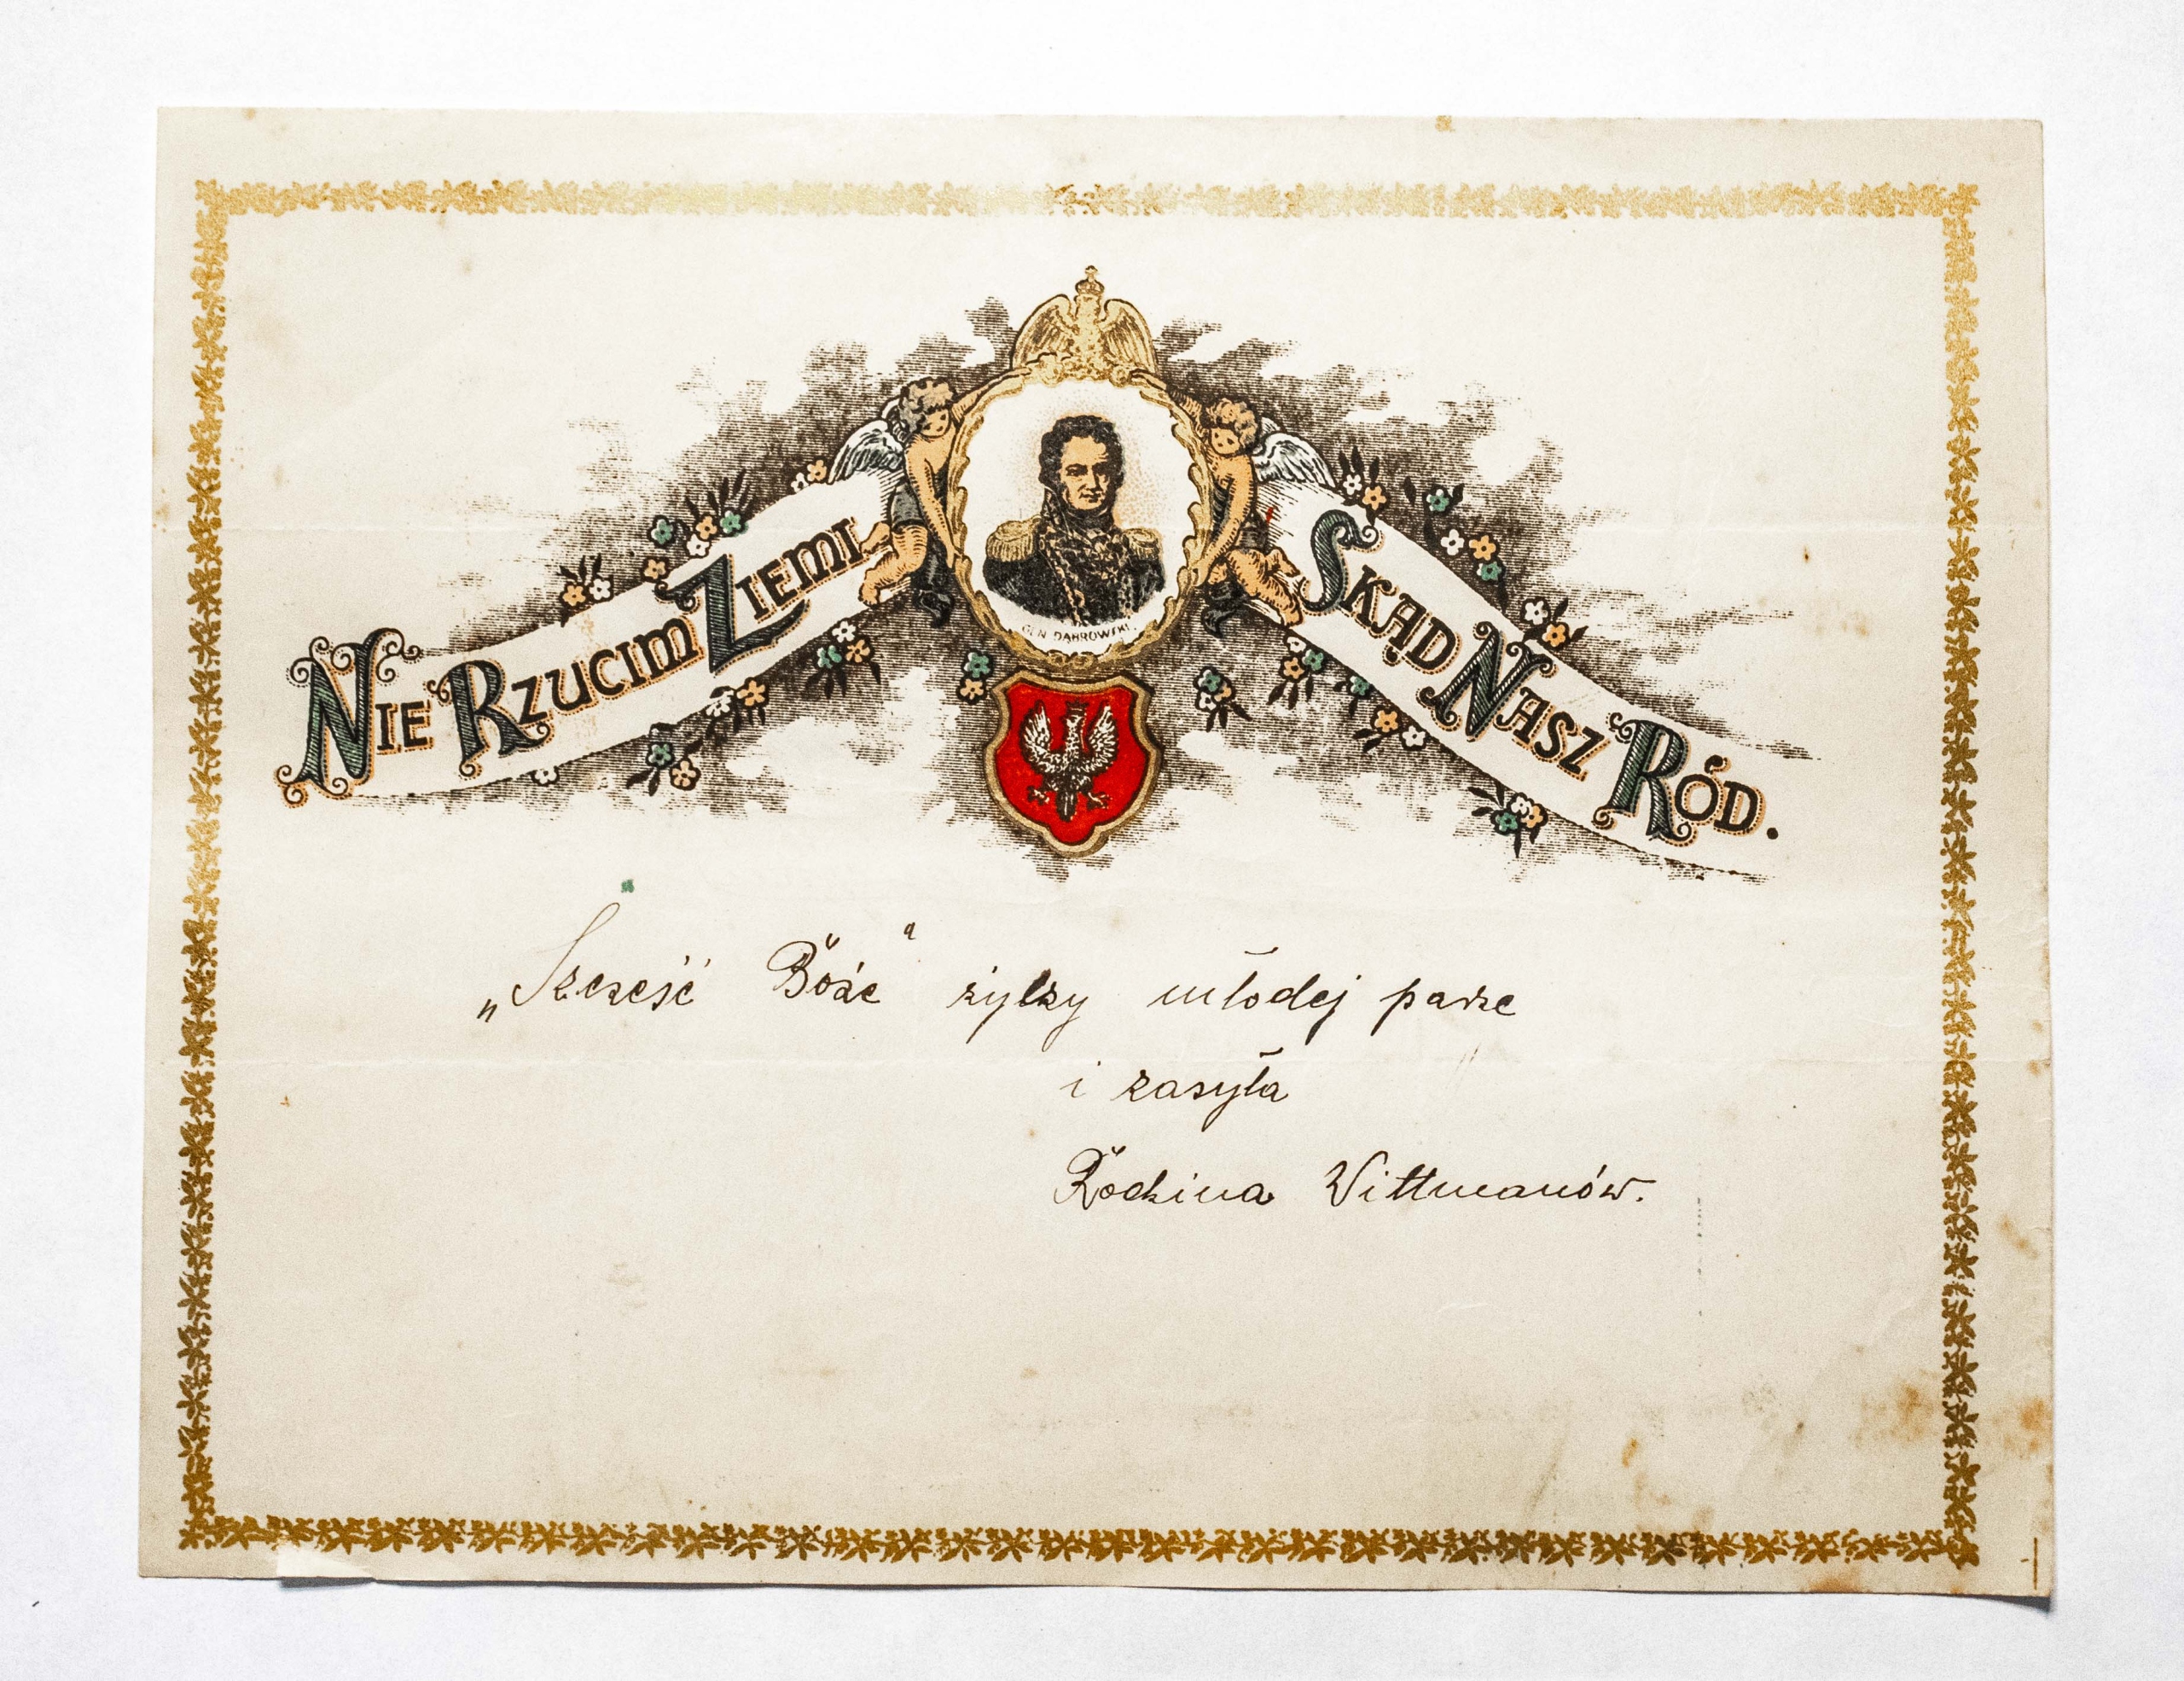 Nie Rzucim Ziemi Skąd Nasz Ród.
GEN DĄBROWSKI.
„Szczęść Boże" życzy młodej parze
i zasyła
Rodzina Wittmanów.